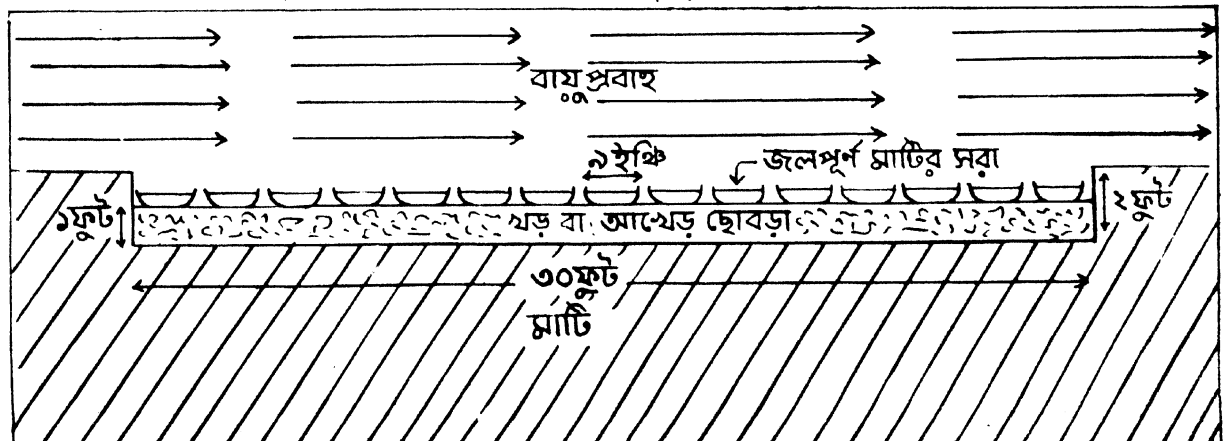 বায়ু প্রবাহ
৯ইঞ্চি
জলপূর্ণ মাটির সরা
১ফুট
২ফুট
খড় বা আখেড় ছোবড়া
৩০ফুট
মাটি